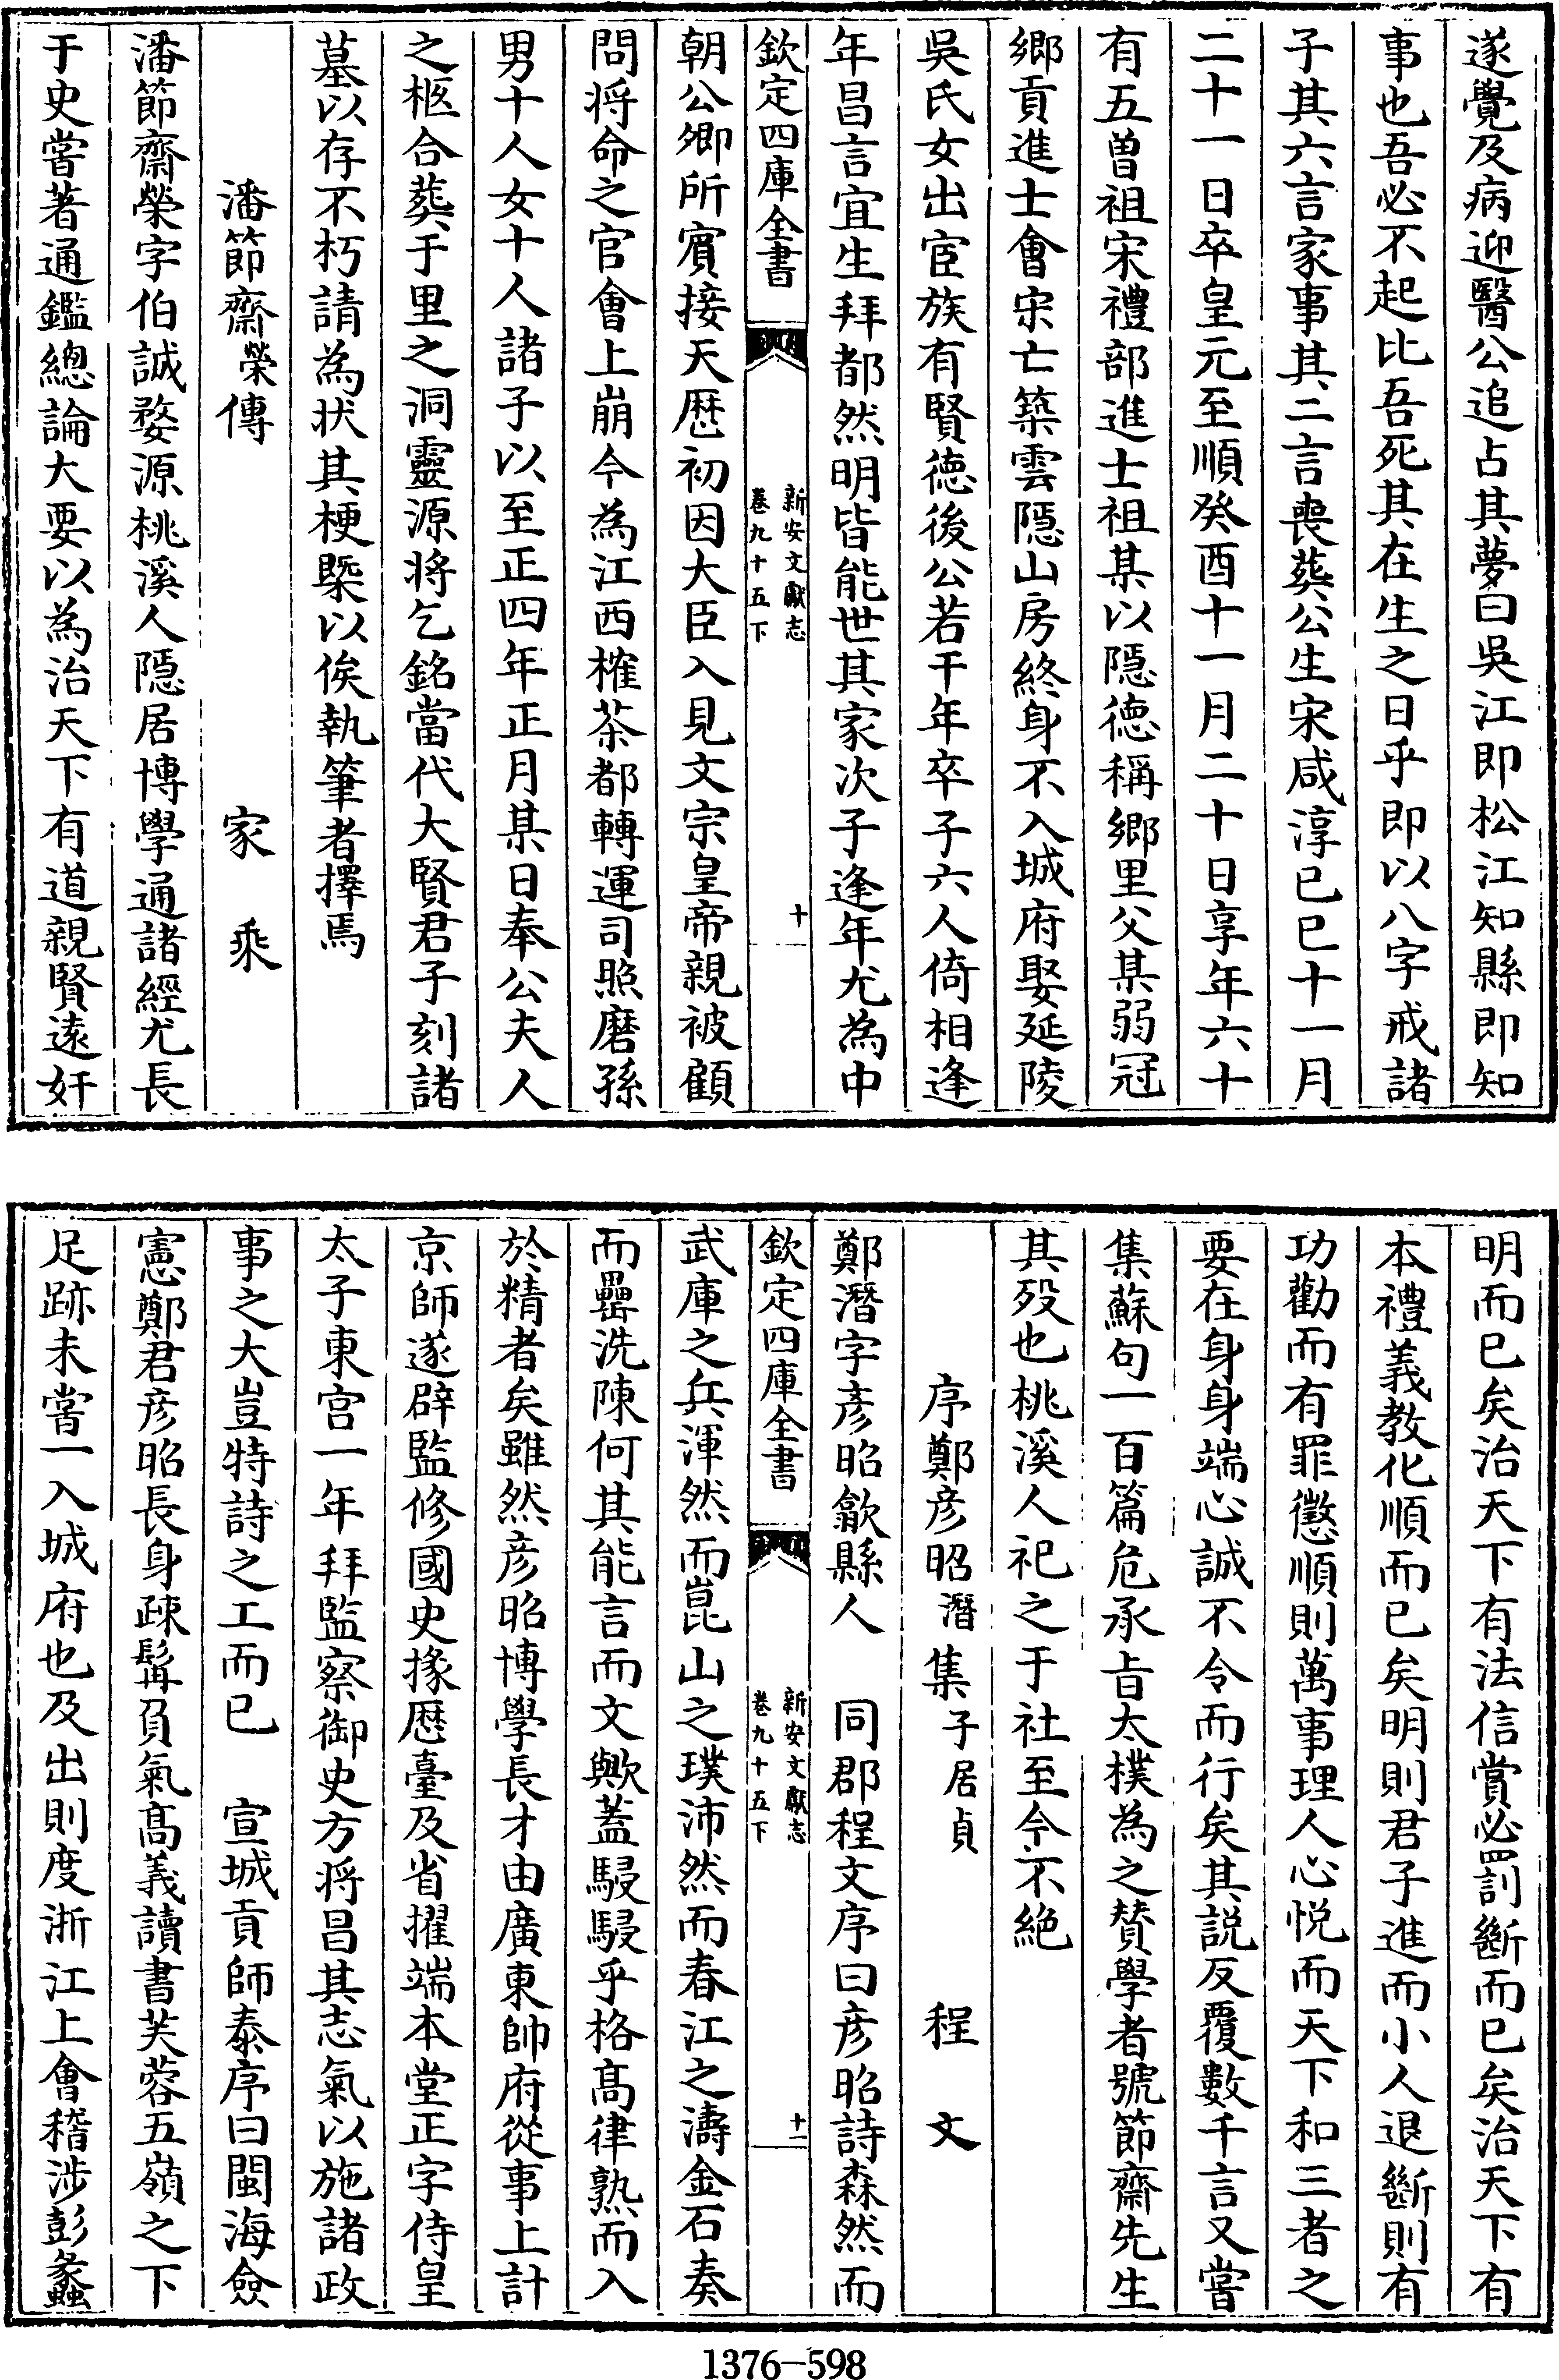 遂覺及病迎醫公追占其夢曰吳江即松江知縣即知
事也吾必不起比吾死其在生之日乎即以八字戒諸
子其六言家事其二言喪葬公生宋咸淳己巳十一月
二十一日卒皇元至順癸酉十一月二十日享年六十
有五曽祖宋禮部進士祖某以隠徳稱鄉里父某弱冠
鄉貢進士會宋亡築雲隠山房終身不入城府娶延陵
吳氏女出宦族有賢徳後公若干年卒子六人倚相逢
年昌言宜生拜都然明皆能世其家次子逢年尤為中
欽定四庫全書
新安文獻志
卷九十五下
十
朝公卿所賓接天厯初因大臣入見文宗皇帝親被顧
問將命之官會上崩今為江西榷茶都轉運司照磨孫
男十人女十人諸子以至正四年正月某日奉公夫人
之柩合葬于里之洞靈源將乞銘當代大賢君子刻諸
墓以存不朽請為状其梗槩以俟執筆者擇焉
潘節齋榮傳
家乘
潘節齋榮字伯誠婺源桃溪人隠居博學通諸經尤長
于史嘗著通鑑總論大要以為治天下有道親賢逺奸
明而已矣治天下有法信賞必罰斷而已矣治天下有
本禮義教化順而已矣明則君子進而小人退斷則有
功勸而有罪懲順則萬事理人心悦而天下和三者之
要在身身端心誠不令而行矣其説反覆數千言又嘗
集蘇句一百篇危承㫖太樸為之賛學者號節齋先生
其殁也桃溪人祀之于社至今不絶
序鄭彦昭潛集子居貞
程文
鄭潛字彦昭歙縣人　同郡程文序曰彦昭詩森然而
欽定四庫全書
新安文獻志
卷九十五下
十一
武庫之兵渾然而崑山之璞沛然而春江之濤金石奏
而罍洗陳何其能言而文歟蓋駸駸乎格髙律熟而入
於精者矣雖然彦昭博學長才由廣東帥府從事上計
京師遂辟監修國史掾厯臺及省擢端本堂正字侍皇
太子東宫一年拜監察御史方將昌其志氣以施諸政
事之大豈特詩之工而已　宣城貢師泰序曰閩海僉
憲鄭君彦昭長身疎髯負氣髙義讀書芙蓉五嶺之下
足跡未嘗一入城府也及出則度浙江上會稽渉彭蠡
1376—598